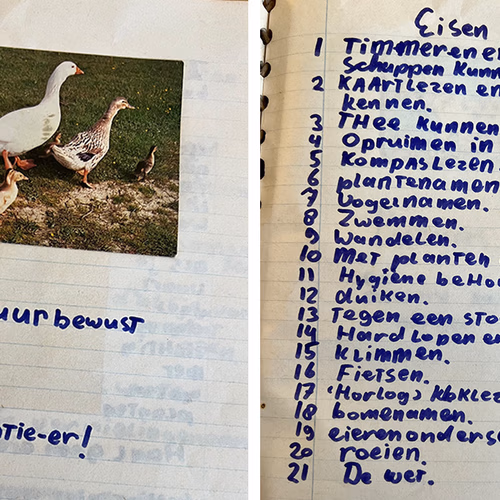 uurbewust
tie-er!
Eisen
1 Timmeren e
Schuppen kunn
2 KAArtlezen en
kennen.
3 THee kunnen
4 Opruimen in
5 Kompaslezen.
6 plantenamen
7 Vogelnamen.
8 Zwemmen.
9 Wandelen.
10 Met planten
11 Hygiëne beHo
12 duiken.
13 Tegen een sto
14 Hardlopen en
15 Klimmen.
16 Fietsen.
17 (Horlog) Kloklez
18 bomenamen.
19 eierenonders
20 roeien.
21 De wet.